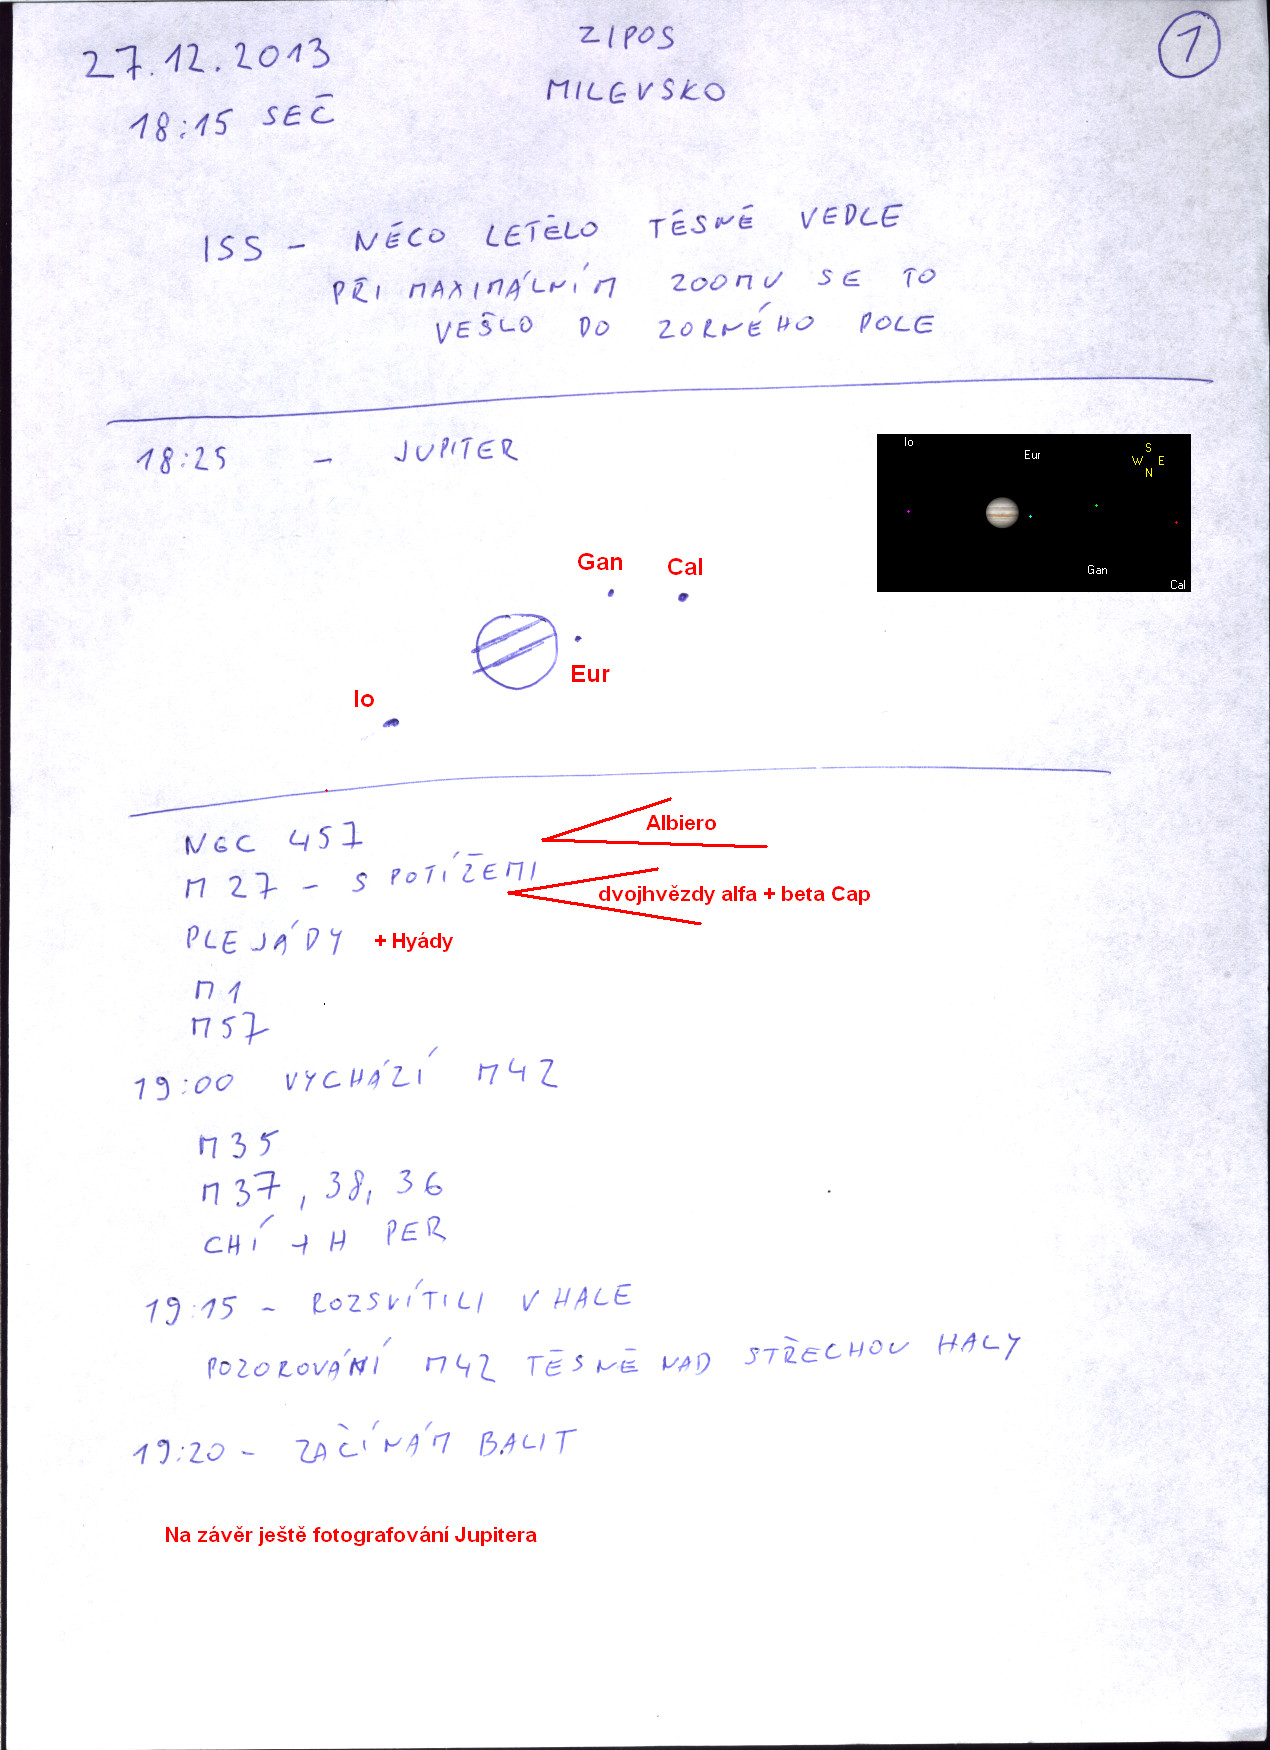 27.12.2013
ZIPOS
1
MILEVSKO
18:15 SEČ
ISS - NĚCO LETĚLO TĚSNĚ VEDLE
PŘI MAXIMÁLNÍM ZOOMU SE TO
VEŠLO DO ZORNÉHO POLE
18:25 - JUPITER
Io
Eur
S
W E
N
Gan
Cal
Gan Cal
Eur
Io
NGC 457
Albiero
M 27 - S POTÍŽEMI
dvojhvězdy alfa + beta Cap
PLEJÁDY + Hyády
M1
M57
19:00 VYCHÁZÍ M42
M35
M37, 38, 36
CHÍ + H PER
19:15 - ROZSVÍTILI V HALE
POZOROVÁNÍ M42 TĚSNĚ NAD STŘECHOU HALY
19:20 - ZAČÍNÁM BALIT
Na závěr ještě fotografování Jupitera